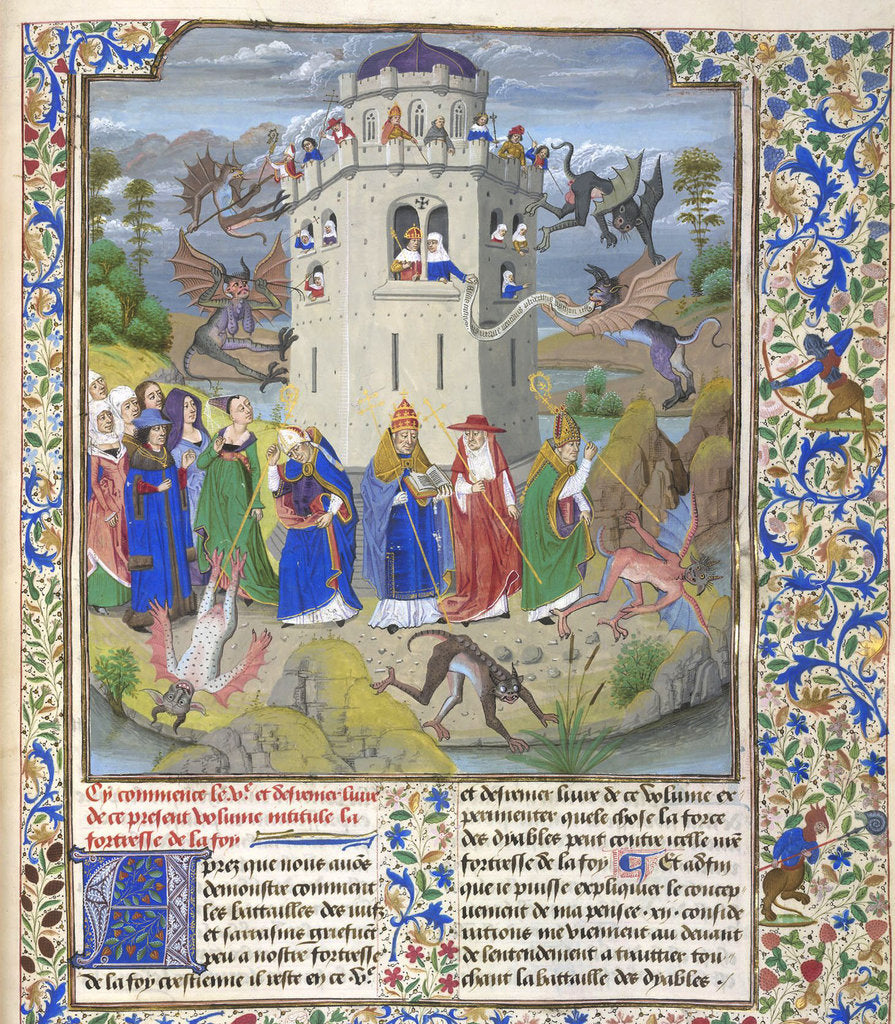 Cy commence le .V.e et desrenier liure
de ce present volume intitule la
fortresse de la foy
Aprez que nous auōs
demonstre comment
les battailles des iuifz
et sarrasins griefuēt
peu a nostre fortresse
de la foy crestienne il reste en ce .V.e
et desrenier liure de ce volume ex
perimenter quele chose la force
des dyables peut contre icelle
fortresse de la foy Et adfin
que ie puisse expliquier le concep
uement de ma pensee .xij. conside
rations me viennent au deuant
de lentendement a traittier tou
chant la battaille des dyables .